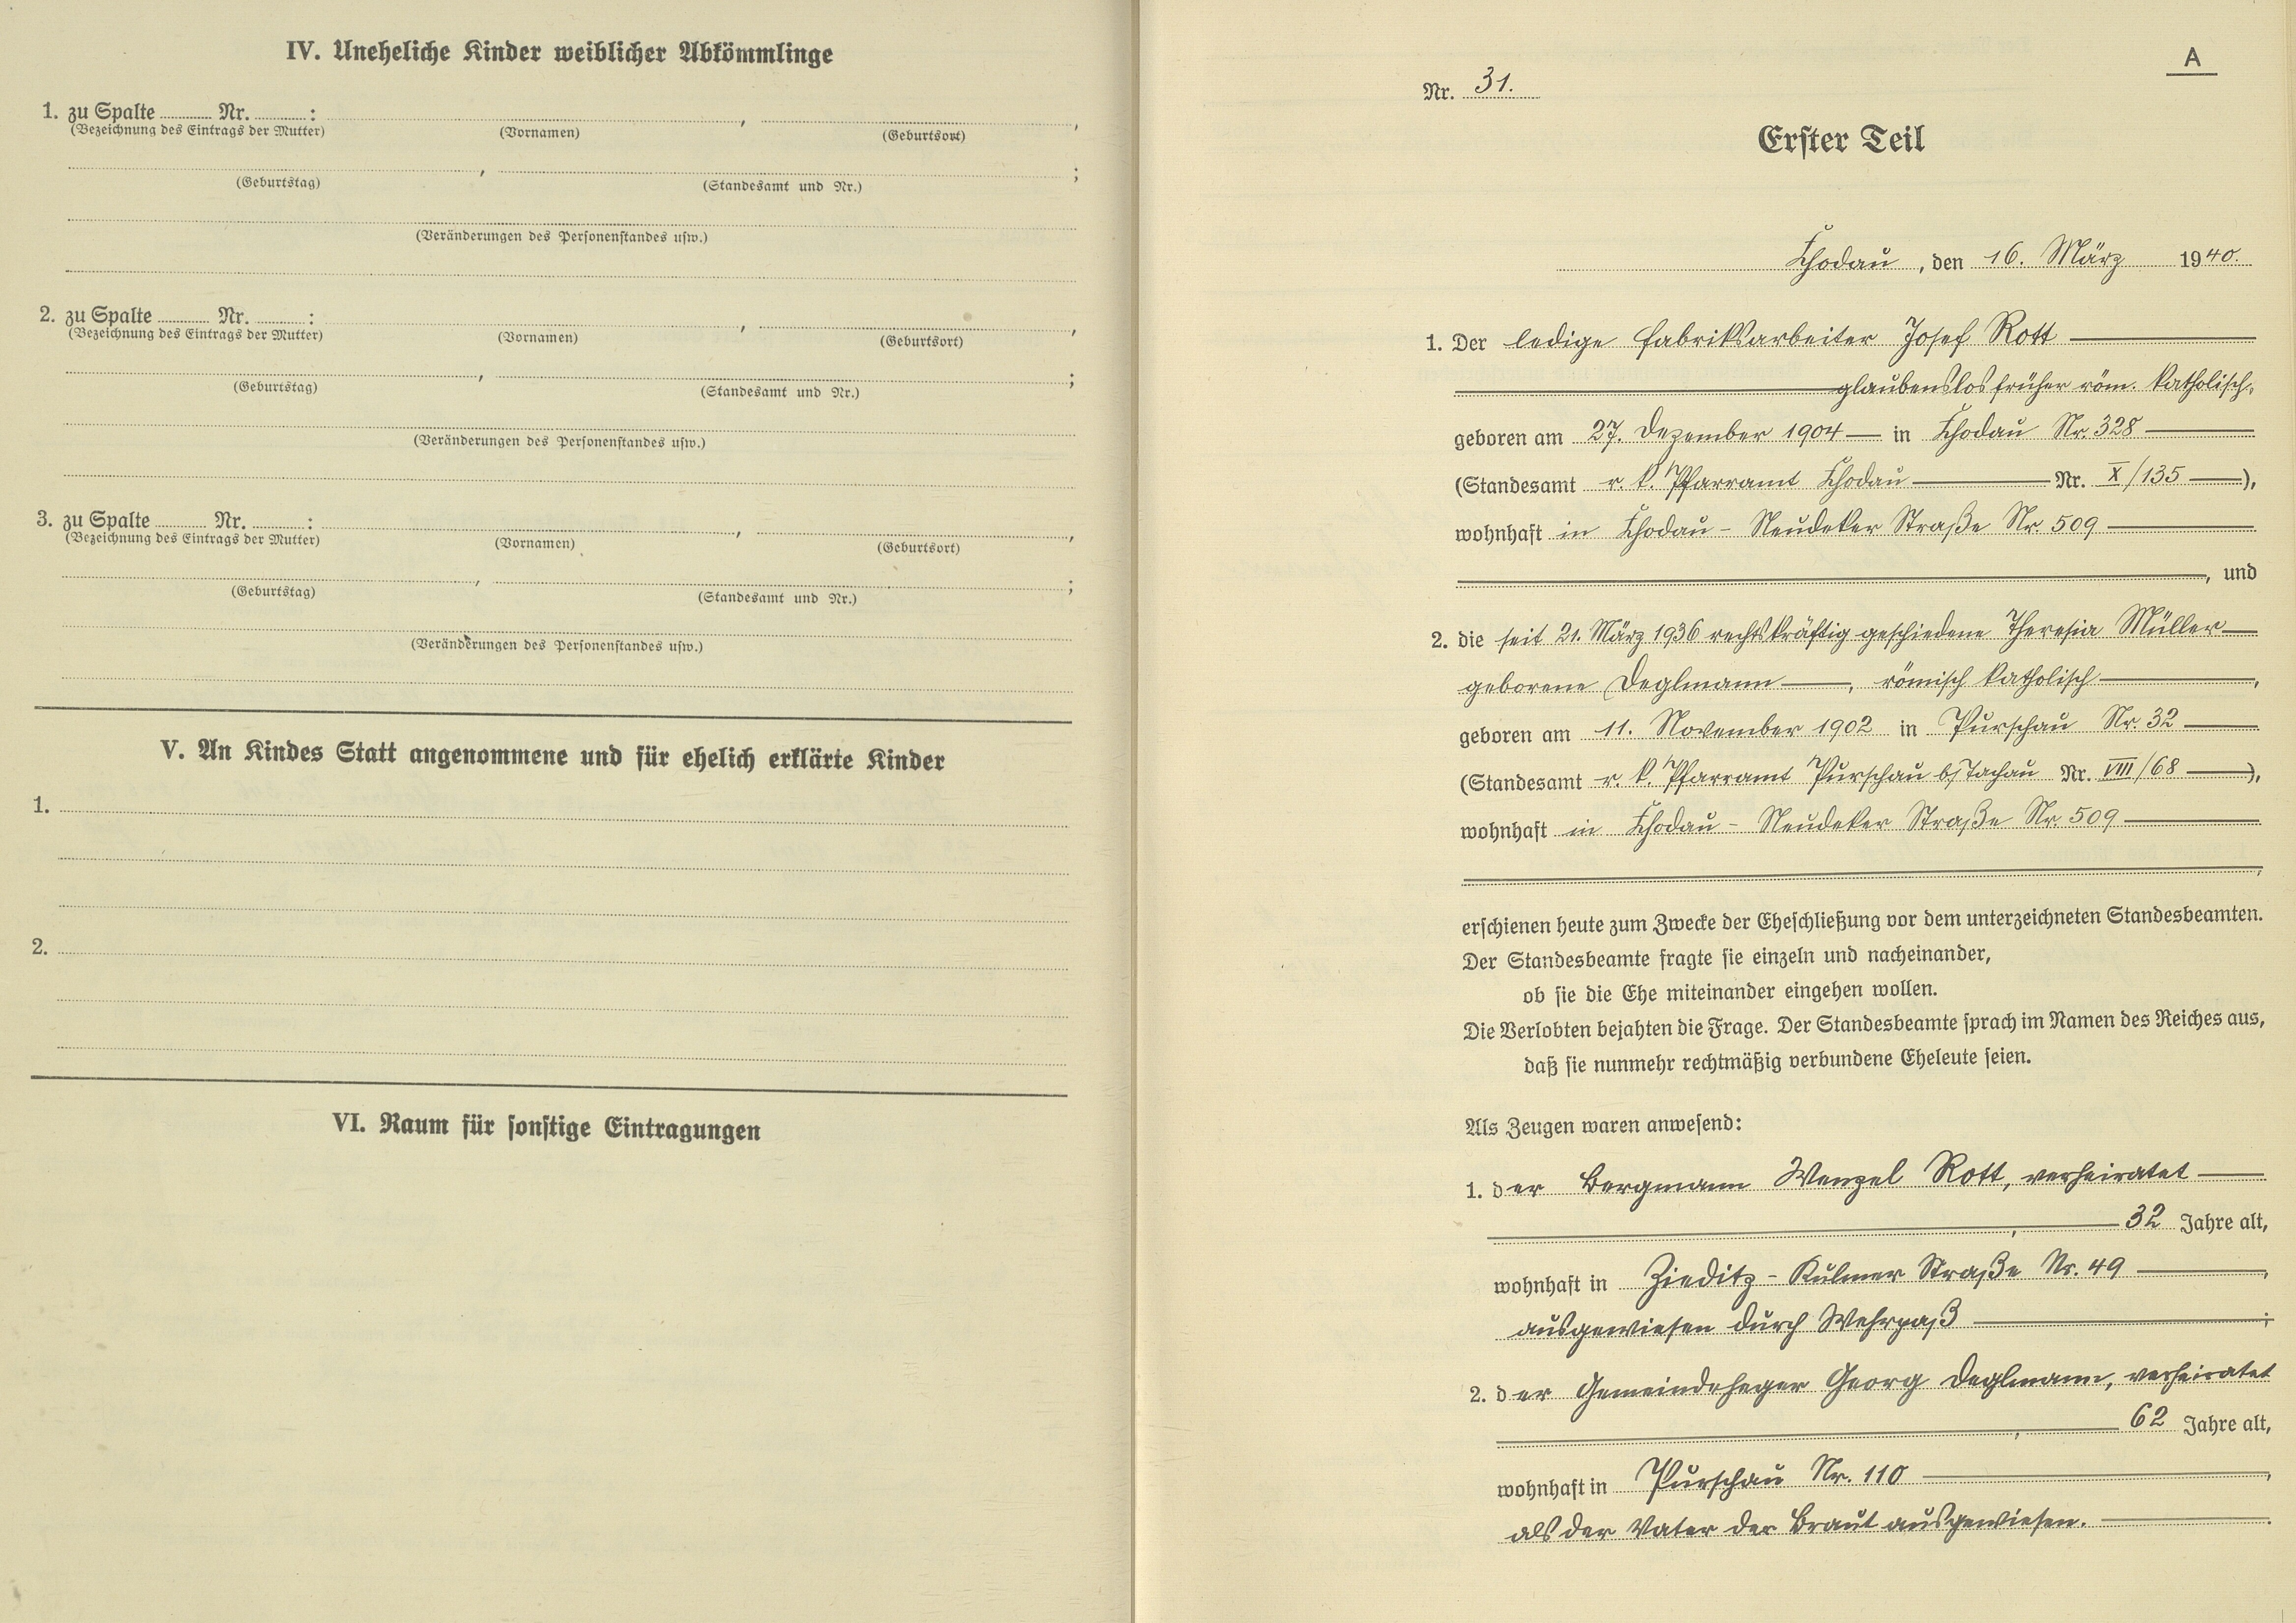 IV. Uneheliche Kinder weiblicher Abkömmlinge
1. zu Spalte ........ Nr. ........ : , ,
(Bezeichnung des Eintrags der Mutter) (Vornamen) (Geburtsort)
, ;
(Geburtstag) (Standesamt und Nr.)
(Veränderungen des Personenstandes usw.)
2. zu Spalte ........ Nr. ........ : , ,
(Bezeichnung des Eintrags der Mutter) (Vornamen) (Geburtsort)
, ;
(Geburtstag) (Standesamt und Nr.)
(Veränderungen des Personenstandes usw.)
3. zu Spalte ........ Nr. ........ : , ,
(Bezeichnung des Eintrags der Mutter) (Vornamen) (Geburtsort)
, ;
(Geburtstag) (Standesamt und Nr.)
(Veränderungen des Personenstandes usw.)
V. An Kindes Statt angenommene und für ehelich erklärte Kinder
1.
2.
VI. Raum für sonstige Eintragungen
A
Nr. 31.
Erster Teil
Chodau, den 16. März 1940.
1. Der ledige Fabriksarbeiter Josef Rott
glaubenslos früher röm. katholisch,
geboren am 27. Dezember 1904 in Chodau Nr. 328
(Standesamt r. k. Pfarramt Chodau Nr. X/135),
wohnhaft in Chodau - Neudeker Straße Nr. 509
, und
2. die seit 21. März 1936 rechtskräftig geschiedene Theresia Müller
geborene Deglmann, römisch katholisch,
geboren am 11. November 1902 in Purschau Nr. 32
(Standesamt r. k. Pfarramt Purschau b/Tachau Nr. VIII/68),
wohnhaft in Chodau - Neudeker Straße Nr. 509
,
erschienen heute zum Zwecke der Eheschließung vor dem unterzeichneten Standesbeamten.
Der Standesbeamte fragte sie einzeln und nacheinander,
ob sie die Ehe miteinander eingehen wollen.
Die Verlobten bejahten die Frage. Der Standesbeamte sprach im Namen des Reiches aus,
daß sie nunmehr rechtmäßig verbundene Eheleute seien.
Als Zeugen waren anwesend:
1. der Bergmann Wenzel Rott, verheiratet
, 32 Jahre alt,
wohnhaft in Zieditz - Kulmer Straße Nr. 49,
ausgewiesen durch Wehrpaß;
2. der Gemeindeheger Georg Deglmann, verheiratet
, 62 Jahre alt,
wohnhaft in Purschau Nr. 110,
als der Vater der Braut ausgewiesen.